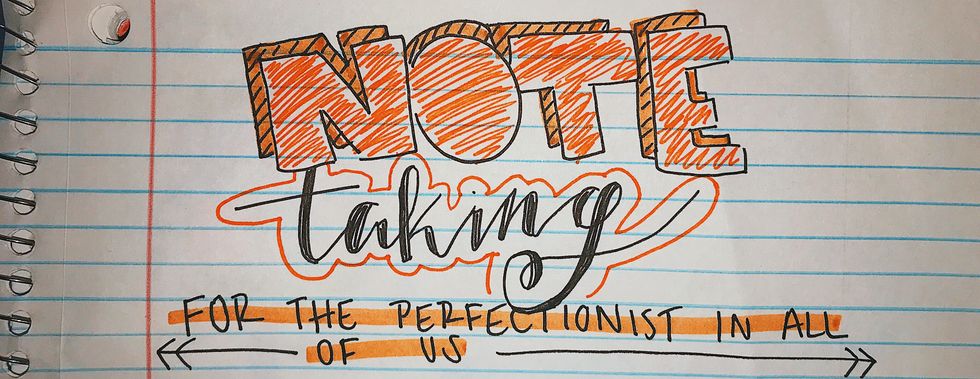 NOTE
taking
FOR THE PERFECTIONIST IN ALL
OF US